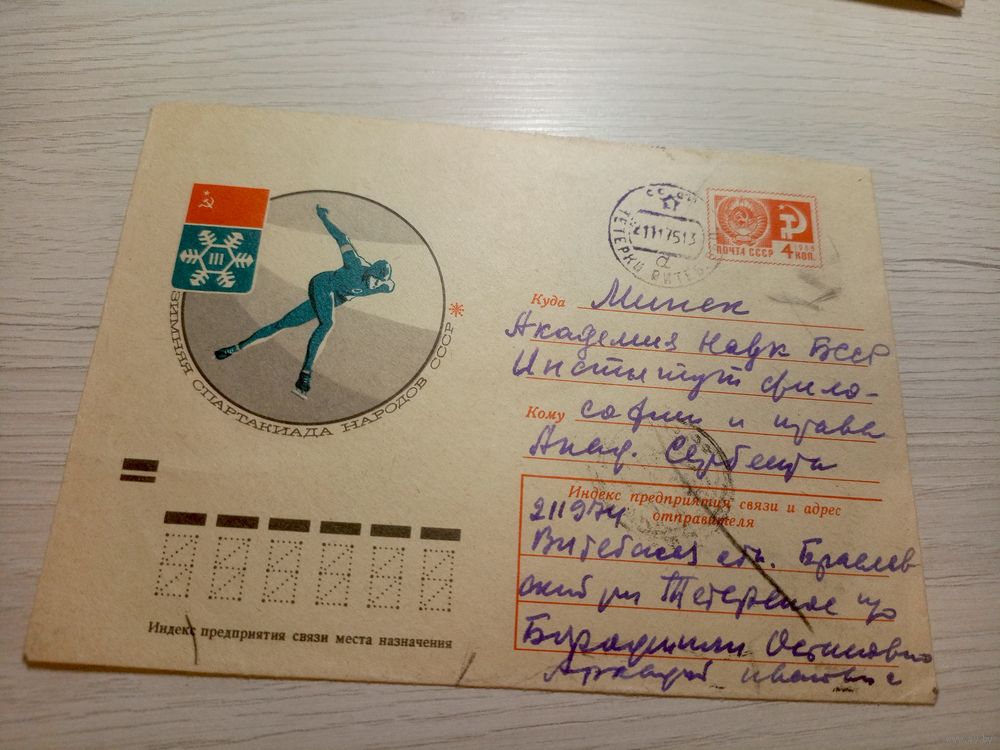 III
ЗИМНЯЯ СПАРТАКИАДА НАРОДОВ СССР
ТЕТЕРКИ ВИТЕБ
21117513
а
ПОЧТА СССР
1966
4 КОП.
Куда Минск
Академия Наук БССР
Институт фило-
Кому софии и права
Акад. Сербента
Индекс предприятия связи и адрес
отправителя
211974
Витебская обл. Браслав
ский рн Тетеркское по
Остапович
Аркадий
Индекс предприятия связи места назначения